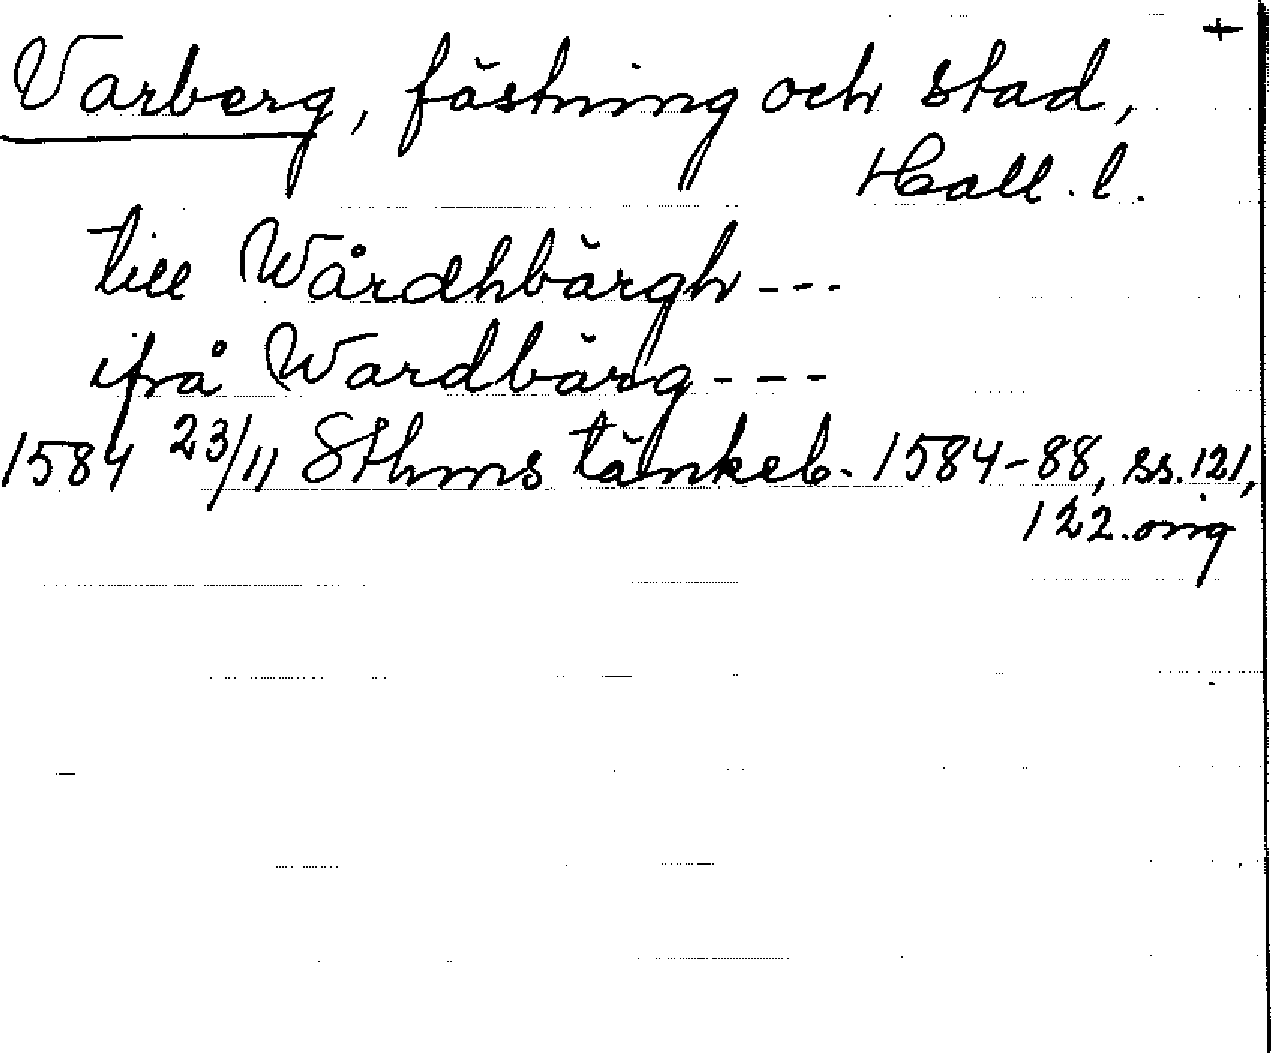 +
Varberg, fästning och stad,
Hall. l.
till Wårdhbärgh ---
ifrå Wardbärg ---
1584 23/11 Sthms tänkeb. 1584-88, ss. 121,
122. orig